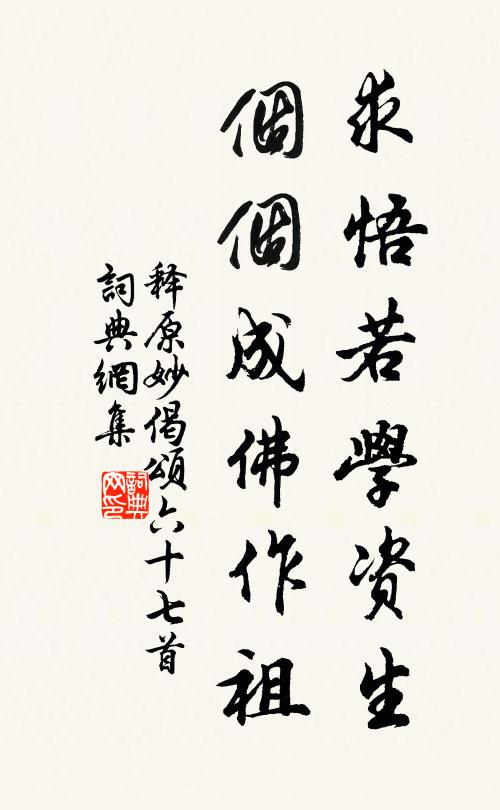 求悟若學资生
個個成佛作祖
释原妙偈頌六十七首
詞典網集
詞典网印